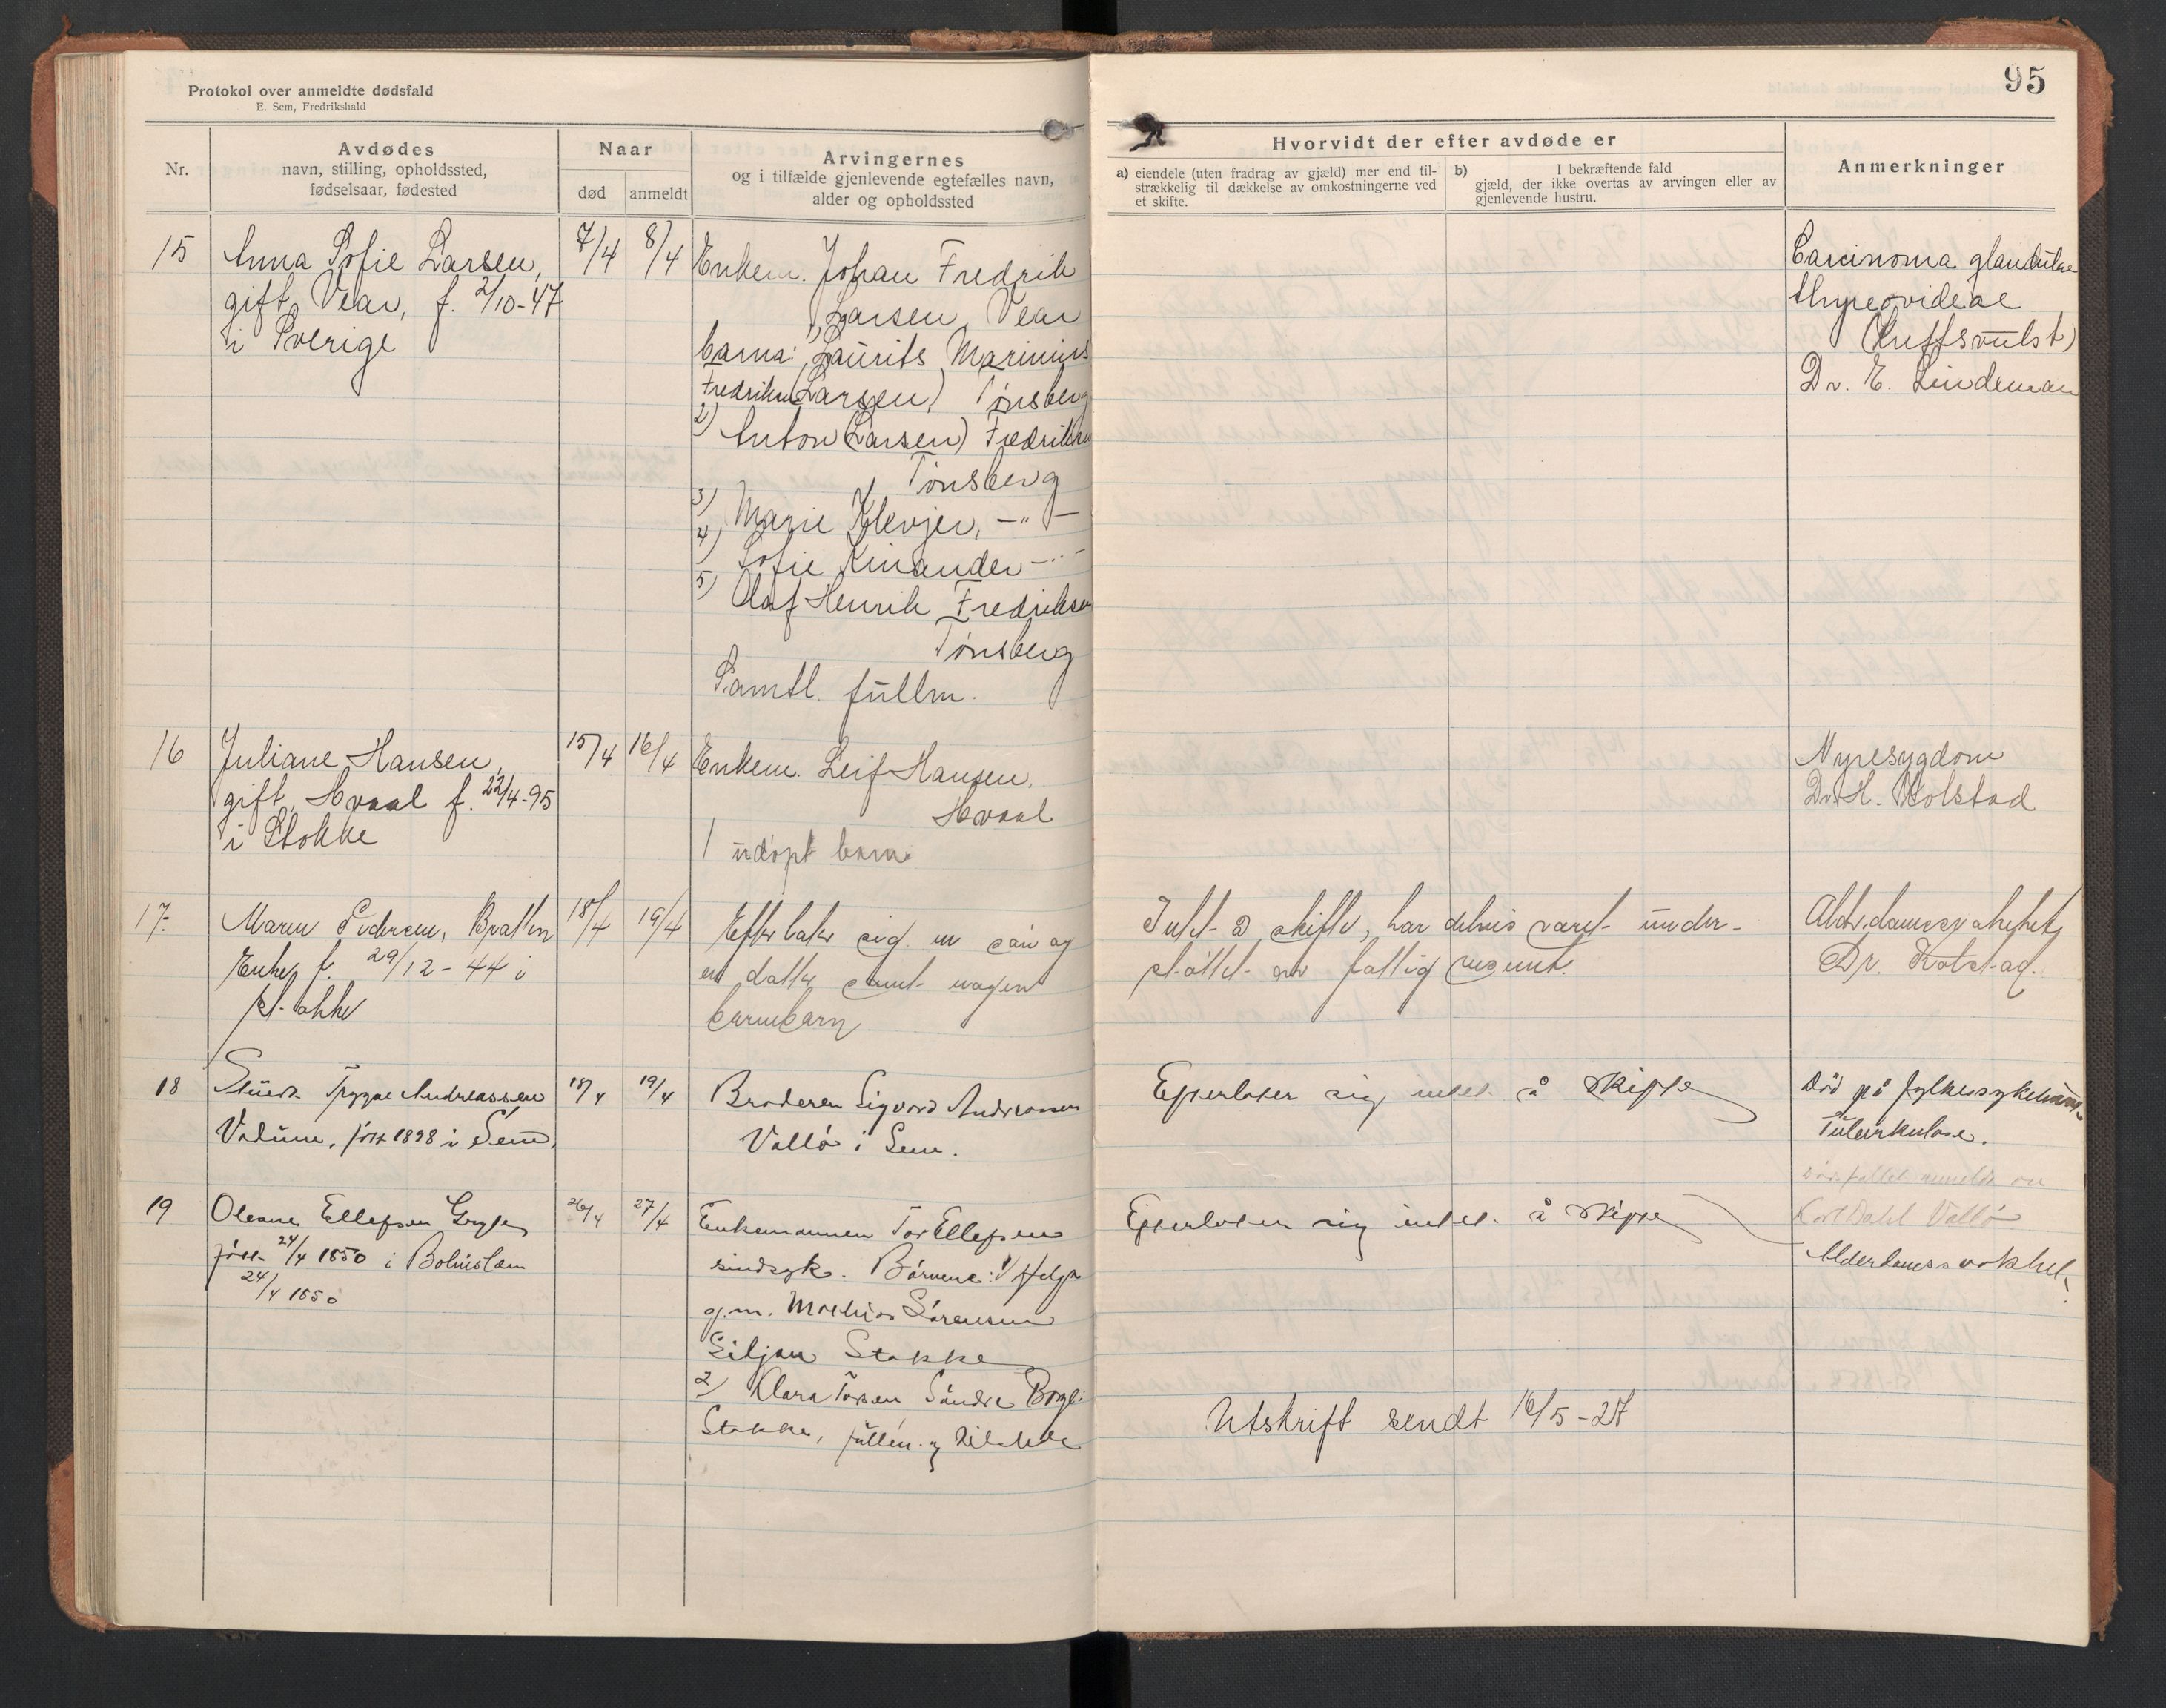 Protokol over anmeldte dødsfald
E. Sem, Fredrikshald
95
Nr.
Avdødes
navn, stilling, opholdssted,
fødselsaar, fødested
Naar
død
anmeldt
Arvingernes
og i tilfælde gjenlevende egtefælles navn,
alder og opholdssted
Hvorvidt der efter avdøde er
a) eiendele (uten fradrag av gjæld) mer end til-
strækkelig til dækkelse av omkostningerne ved
et skifte.
b) I bekræftende fald
gjæld, der ikke overtas av arvingen eller av
gjenlevende hustru.
Anmerkninger
15
Anna Sofie Larsen,
gift, Vear, f. 2/10-47
i Sverige
7/4
8/4
Enkem. Johan Fredrik
Larsen, Vear
barna: 1) Laurits Marinius
Fredriksen (Larsen), Tønsberg
2) Anton (Larsen) Fredriksen
Tønsberg
3) Marie Klevjer, —"—
4) Sofie Kinander —"—
5) Olaf Henrik Fredriksen
Tønsberg
Samtl. fullm.
Carcinoma glandulae
thyreoideae
(Kreftsvulst)
Dr. E. Lindeman
16
Juliane Hansen,
gift, Hvaal f. 22/4-95
i Stokke
15/4
16/4
Enkem. Leif Hansen,
Hvaal
1 adopt barn.
Nyresygdom
Dr. H. Kolstad
17.
Maren Pedersen, Bratten
Enke, f. 29/12-44 i
Stokke
18/4
19/4
Efterlater sig en søn og
en datter samt nogen
barnebarn
Intet å skifte, har delvis været under-
støttet av fattigvesenet.
Alderdomssvakhet,
Dr. Kolstad.
18
Trygve Andreassen
født 1898 i Sem,
18/4
19/4
Broderen Sigvard Andreassen
Vallø i Sem.
Efterlater sig intet å skifte
Død på fylkessykehuset
Tuberkulose.
Dødsfallet anmeldt av
Karl Dahl Vallø
19
Oleane Ellefsen
født 24/4 1850 i
24/4 1850
26/4
27/4
Enkemannen Tor Ellefsen
sindsyk. Børnene: 1/ Helga
g.m. Mathias Sørensen
Giljan Stokke
2/ Klara Torsen Søndre
Stokke, fullm. og
Efterlater sig intet å skifte
Alderdomssvakhet.
Utskrift sendt 16/5-27